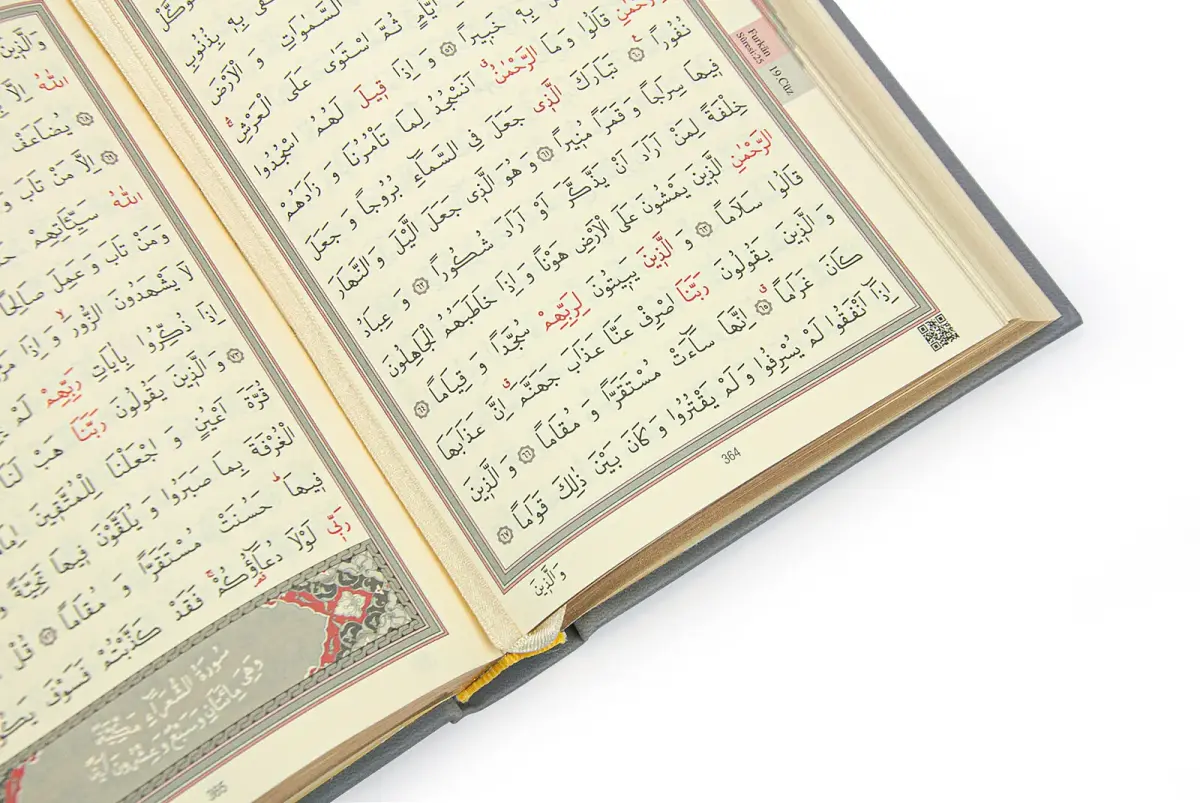 Furkân
Sûresi:25
19.Cüz
بِهٖ بِذُنُوبِ
السَّمٰوَاتِ وَ الْاَرْضَ
اَيَّامٍ ثُمَّ اسْتَوٰى عَلَى الْعَرْشِ
بِهٖ خَبٖيرًا ٥٩ وَ اِذَا قٖيلَ لَهُمُ اسْجُدُوا
قَالُوا وَ مَا الرَّحْمٰنُ اَنَسْجُدُ لِمَا تَأْمُرُنَا وَ زَادَهُمْ
نُفُورًا ٦٠ تَبَارَكَ الَّذٖى جَعَلَ فِى السَّمَٓاءِ بُرُوجًا وَ جَعَلَ
فٖيهَا سِرَاجًا وَ قَمَرًا مُنٖيرًا ٦١ وَ هُوَ الَّذٖى جَعَلَ الَّيْلَ وَ النَّهَارَ
خِلْفَةً لِمَنْ اَرَادَ اَنْ يَذَّكَّرَ اَوْ اَرَادَ شُكُورًا ٦٢ وَ عِبَادُ
الرَّحْمٰنِ الَّذٖينَ يَمْشُونَ عَلَى الْاَرْضِ هَوْنًا وَ اِذَا خَاطَبَهُمُ الْجَاهِلُونَ
قَالُوا سَلَامًا ٦٣ وَ الَّذٖينَ يَبٖيتُونَ لِرَبِّهِمْ سُجَّدًا وَ قِيَامًا ٦٤
وَ الَّذٖينَ يَقُولُونَ رَبَّنَا اصْرِفْ عَنَّا عَذَابَ جَهَنَّمَ اِنَّ عَذَابَهَا
كَانَ غَرَامًا ٦٥ اِنَّهَا سَٓاءَتْ مُسْتَقَرًّا وَ مُقَامًا ٦٦ وَ الَّذٖينَ
اِذَٓا اَنْفَقُوا لَمْ يُسْرِفُوا وَ لَمْ يَقْتُرُوا وَ كَانَ بَيْنَ ذٰلِكَ قَوَامًا ٦٧
364
وَ الَّذٖينَ
وَ الَّذٖينَ
اللّٰهُ اِلَّا
٦٨ يُضَاعَفْ
٦٩ اِلَّا مَنْ تَابَ وَ
اللّٰهُ سَيِّـَٔاتِهِمْ
وَ مَنْ تَابَ وَ عَمِلَ صَالِحًا
لَا يَشْهَدُونَ الزُّورَ وَ اِذَا
اِذَا ذُكِّرُوا بِاٰيَاتِ رَبِّهِمْ لَمْ
٧٣ وَ الَّذٖينَ يَقُولُونَ رَبَّنَا هَبْ لَنَا
قُرَّةَ اَعْيُنٍ وَ اجْعَلْنَا لِلْمُتَّقٖينَ
الْغُرْفَةَ بِمَا صَبَرُوا وَ يُلَقَّوْنَ فٖيهَا تَحِيَّةً
فٖيهَا حَسُنَتْ مُسْتَقَرًّا وَ مُقَامًا ٧٦ قُلْ
رَبّٖى لَوْلَا دُعَٓاؤُ۬كُمْ فَقَدْ كَذَّبْتُمْ فَسَوْفَ
سُورَةُ الشُّعَرَٓاءِ مَكِّيَّةٌ
وَهِىَ مِائَتَانِ وَسَبْعٌ وَعِشْرُونَ اٰيَةً
365